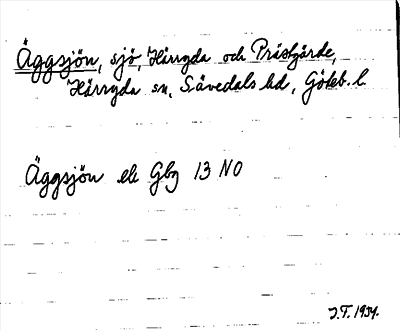 Äggsjön, sjö, Härryda och Prästgårde,
Härryda sn, Sävedals hd, Göteb. l.
Äggsjön ek Gbg 13 NO
J.T. 1934.